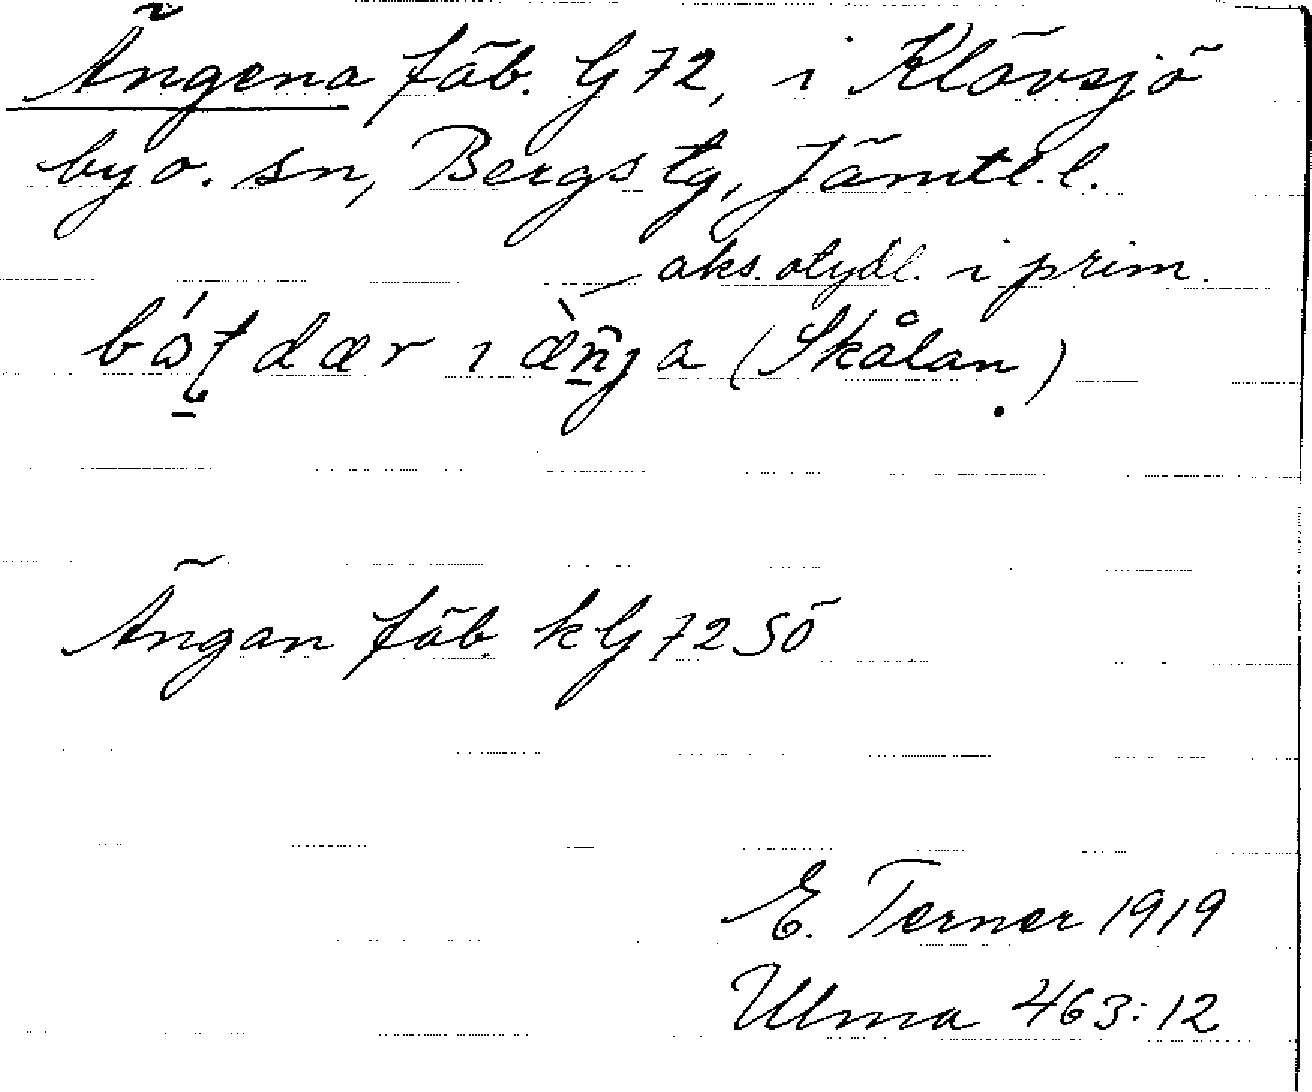 Ängena fäb. G 72, i Klövsjö
by o. sn, Bergs tg, Jämtl. l.
aks. otydl. i prim.
dær ı æ̀ñja (Skålan.)
Ängan fäb. kG 72 SÖ
E. Terner 1919
Ulma 463:12